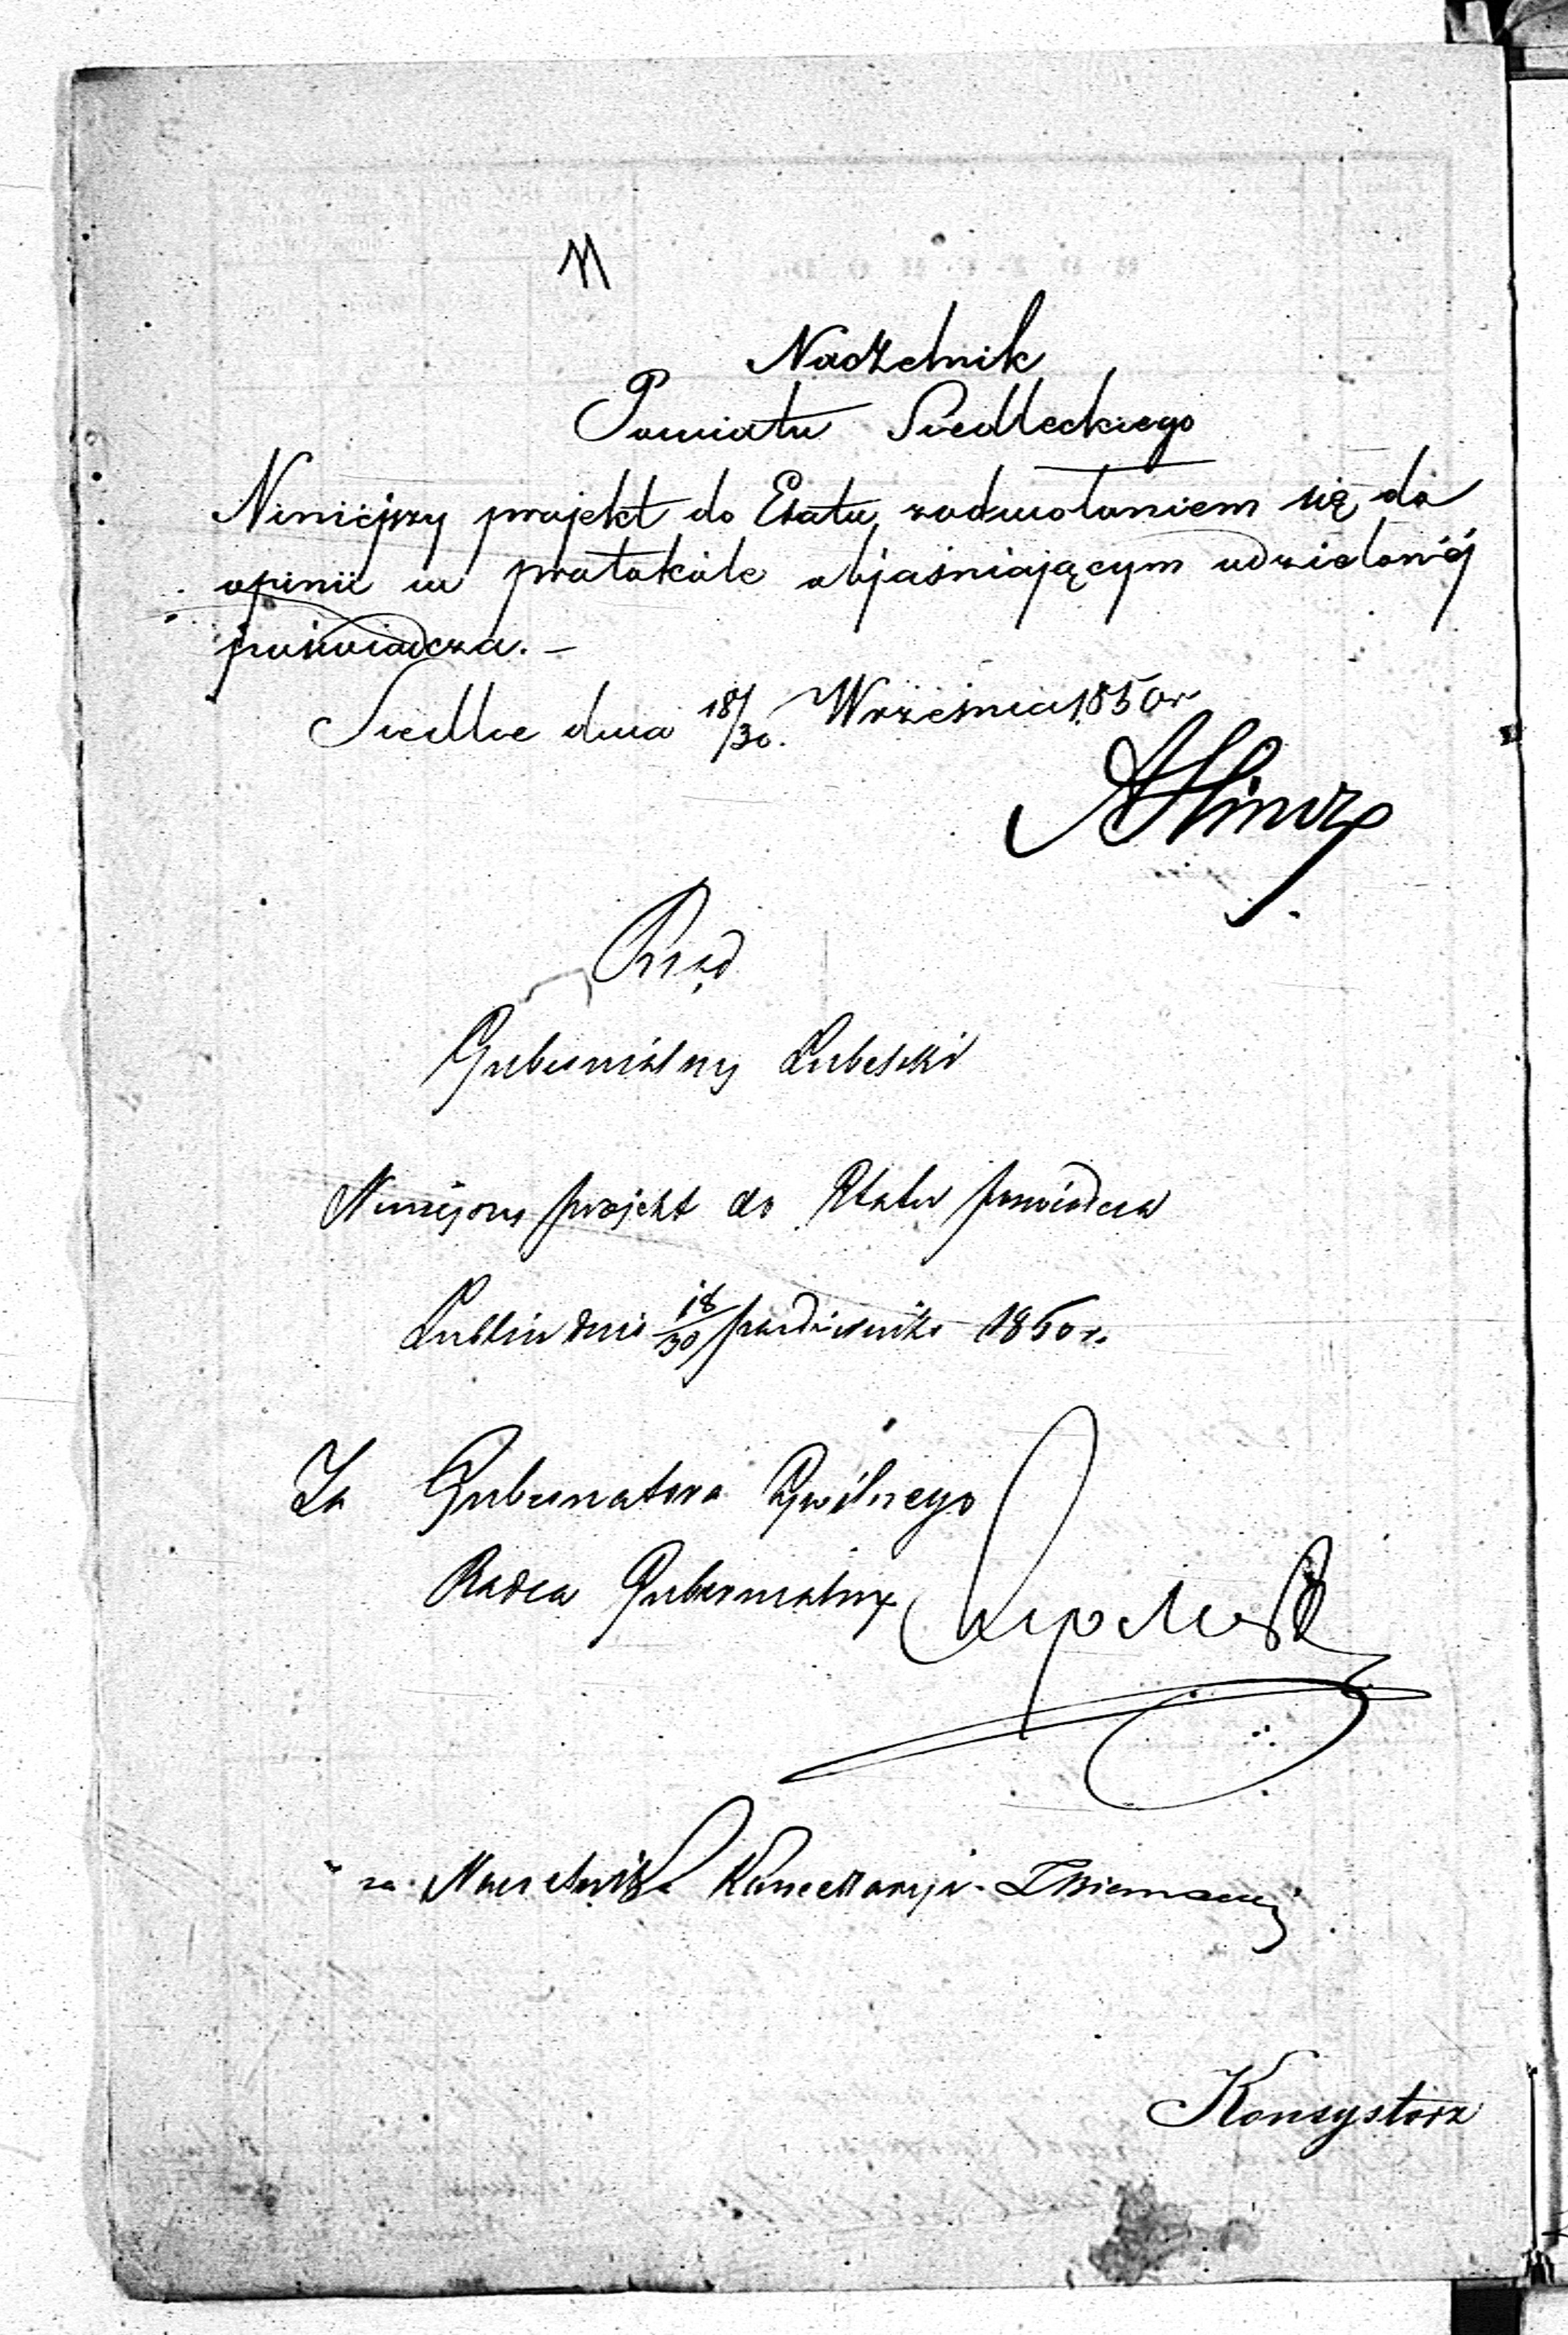 Naczelnik
Powiatu Siedleckiego
Niniejszy projekt do Etatu z odwołaniem się do
opinii w protokóle objaśniającym udzielonéj
poświadcza. –
Siedlce dnia 18/30. Września 1850 r
Rząd
Gubernialny Lubelski
Niniejszy projekt do Etatu poświadcza
Lublin dnia 18/30 października 1850 r.
Za Gubernatora Cywilnego
Radca Gubernialny
za Naczelnika Kancellaryi
Konsystorz